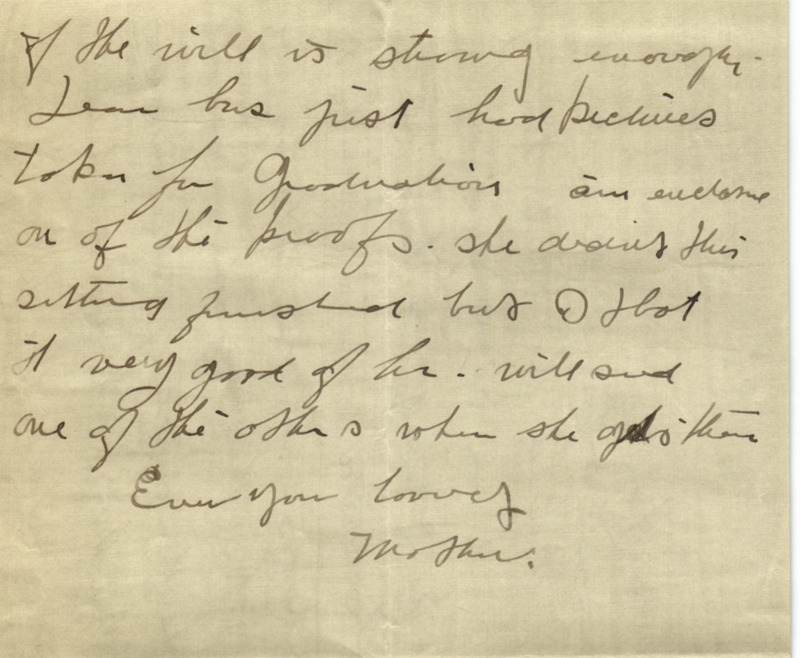 if the will is strong enough.
Jean has just had pictures
taken for Graduation am enclosing
on of the proofs. she didn't this
setting finished but I thot
it very good of her. will send
one of the others when she gets them
Ever your loving
Mother.